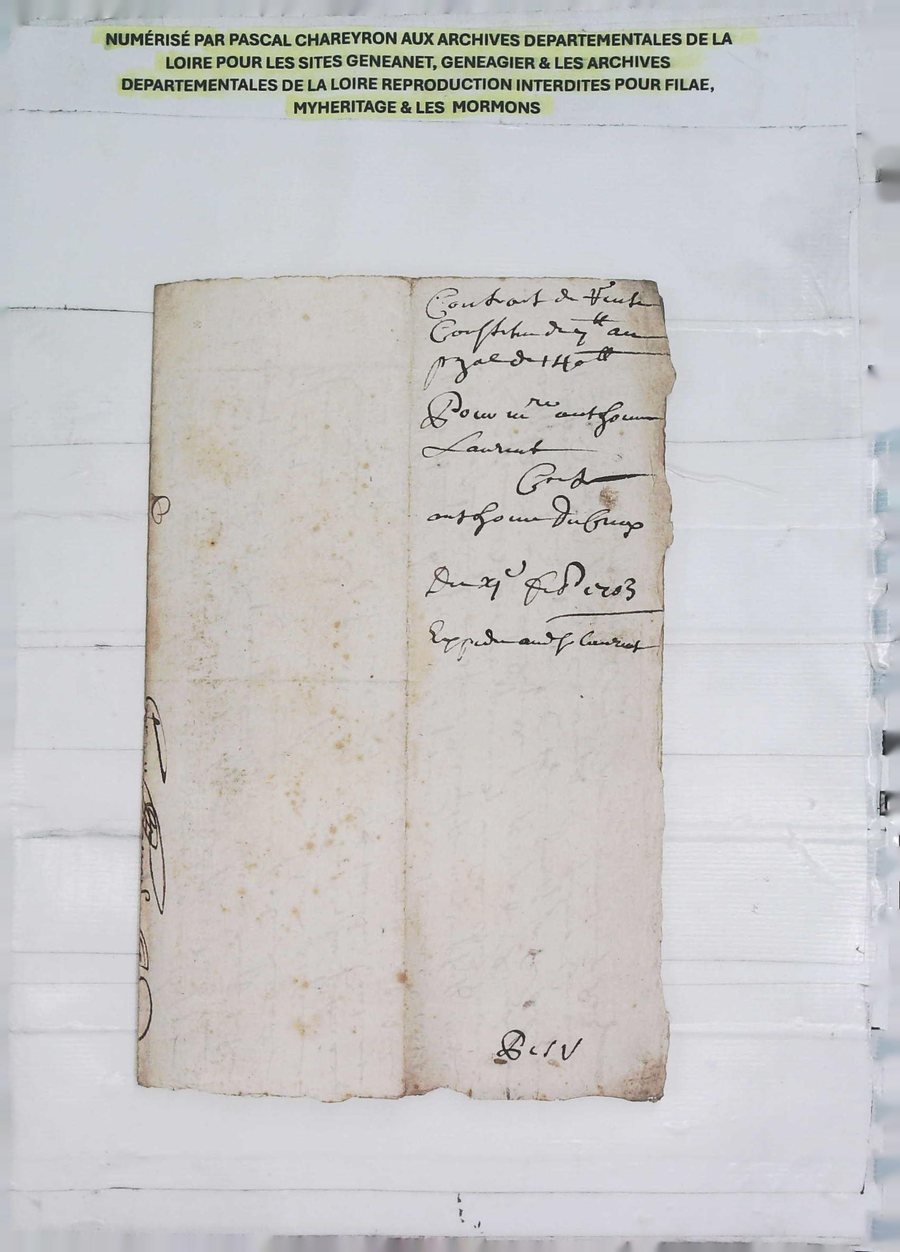 NUMÉRISÉ PAR PASCAL CHAREYRON AUX ARCHIVES DEPARTEMENTALES DE LA
LOIRE POUR LES SITES GENEANET, GENEAGIER & LES ARCHIVES
DEPARTEMENTALES DE LA LOIRE REPRODUCTION INTERDITES POUR FILAE,
MYHERITAGE & LES MORMONS
Contract de
Constitue de 7ᵗᵗ au
de 140ᵗᵗ
Pour mʳᵉ anthoine
Laurent
Cont
anthoine Du Creux
Du xjᵉ 1703
Expedie aud sʳ laurent